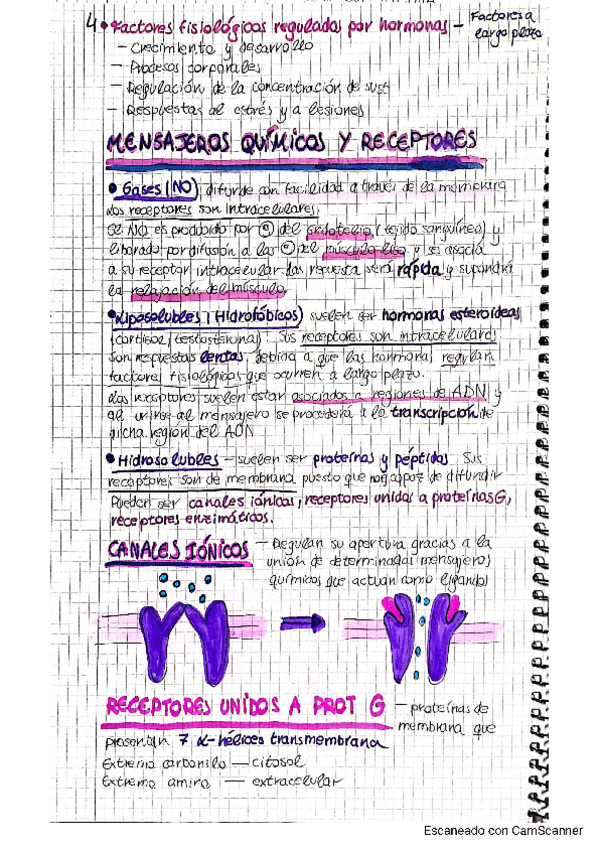 4• Factores fisiológicos regulados por hormonas – Factores a
largo plazo
– Crecimiento y desarrollo
– Procesos corporales
– Regulación de la concentración de sust
– Respuestas al estrés y a lesiones
MENSAJEROS QUÍMICOS Y RECEPTORES
• Gases (NO) difunde con facilidad a través de la membrana
Los receptores son intracelulares.
El NO es producido por @ del endotelio (tejido sanguíneo) y
liberado por difusión a las @ del músculo liso y se asocia
a su receptor intracelular. Las respuesta será rápida y supondrá
la relajación del músculo
• Liposolubles (Hidrofóbicos) suelen ser hormonas esteroideas
(cortisol, testosterona). Sus receptores son intracelulares
Son respuestas lentas debina a que las hormonas regulan
factores fisiológicos que ocurren a largo plazo.
Los receptores suelen estar asociados a regiones de ADN y
al unirse al mensajero se procederá a la transcripción de
dicha región del ADN
• Hidrosolubles – suelen ser proteínas y péptidos. Sus
receptores son de membrana puesto que no capaz de difundir
Pueden ser canales iónicos, receptores unidos a proteínas G,
receptores enzimáticos.
CANALES IÓNICOS – Regulan su apertura gracias a la
unión de determinados mensajeros
químicos que actuan como ligandos
RECEPTORES UNIDOS A PROT G – proteínas de
membrana que
presentan 7 α-hélices transmembrana
Extremo carbonilo — citosol
Extremo amino — extracelular
Escaneado con CamScanner